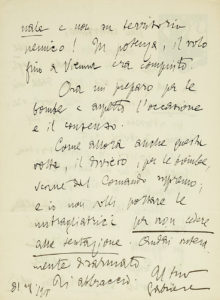 nale e non su territorio
nemico! In potenza, il volo
fino a Vienna era compiuto.
Ora mi preparo per le
bombe e aspetto l'occasione
e il consenso.
Come allora anche questa
volta, il divieto, per le bombe,
venne dal Comando supremo;
e io non volli portare le
mitragliatrici per non cedere
alla tentazione. Andai
mente disarmato.
Ti abbraccio. Il tuo
Gabriele